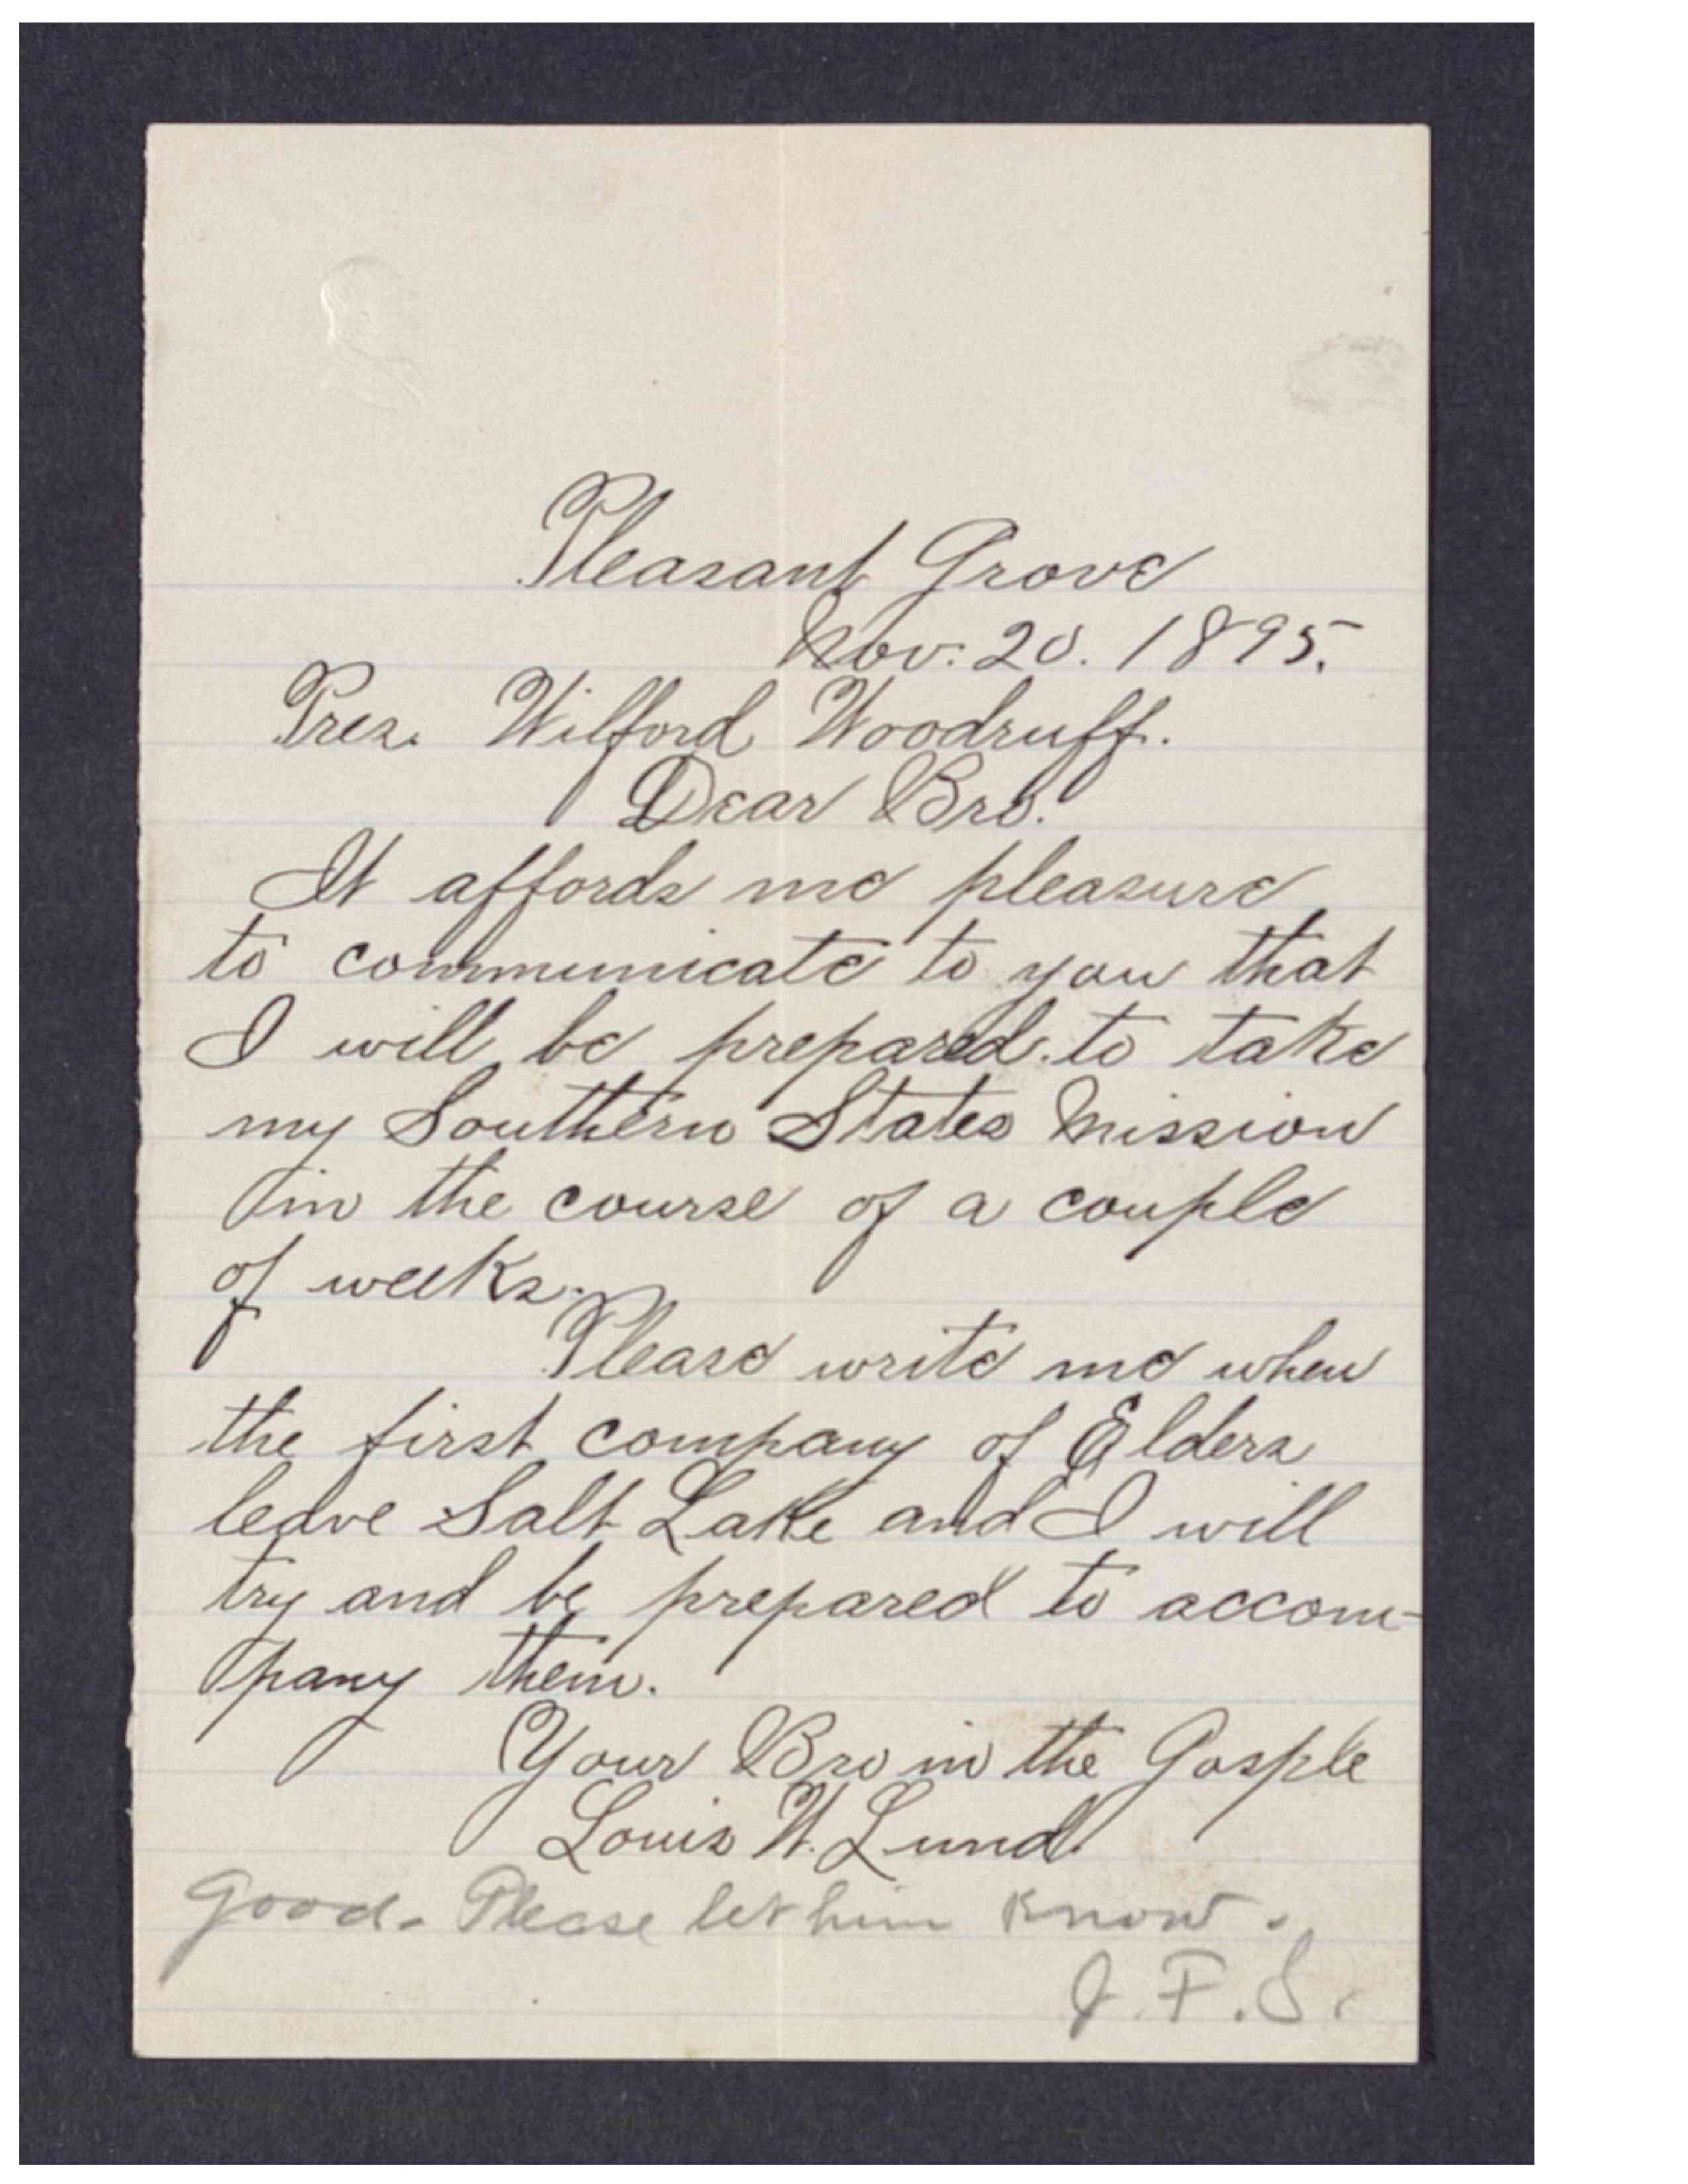 Pleasant Grove
Nov. 20. 1895.
Pres. Wilford Woodruff.
Dear Bro.
It affords me pleasure
to communicate to you that
I will be prepared to take
my Southern States Mission
in the course of a couple
of weeks.
Please write me when
the first company of Elders
leave Salt Lake and I will
try and be prepared to accom-
pany them.
Your Bro in the Gosple
Louis W. Lund
Good. Please let him know.
J. F. S.